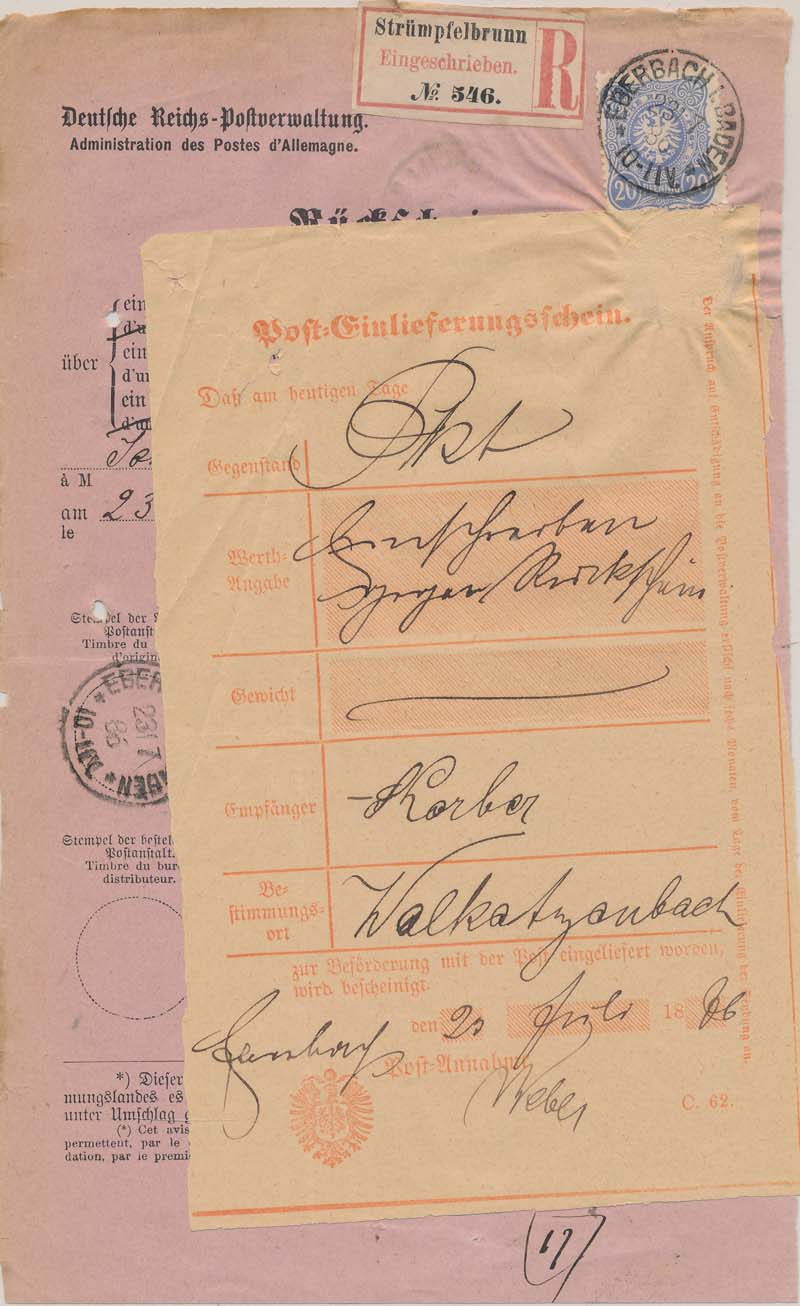 Strümpfelbrunn
Eingeschrieben.
№ 546.
R
EBERBACH i. BADEN
23 7
86
20 20
Deutsche Reichs-Postverwaltung.
Administration des Postes d'Allemagne.
über
ein
ein
d'un
ein
à M
am 23
le
Stempel der
Postanst
Timbre du
d'origin
EBER
23 7
86
BADEN
Stempel der bestel
Postanstalt.
Timbre du bur
distributeur.
*) Dieser
mungslandes es
unter Umschlag
(*) Cet avis
permettent, par le
dation, par le premi
Post-Einlieferungsschein.
Daß am heutigen Tage
Gegenstand
Pkt
Werth-
Angabe
Einschreiben
gegen Rückschein
Gewicht
Empfänger
Korber
Be-
stimmungs-
ort
Walkatzenbach
zur Beförderung mit der Post eingeliefert worden,
wird bescheinigt.
den 23 Juli 1886
Post-Annahme
Weber
C. 62.
Der Anspruch auf Entschädigung an die Postverwaltung erlischt nach sechs Monaten, vom Tage der Einlieferung der Sendung an.
(17)